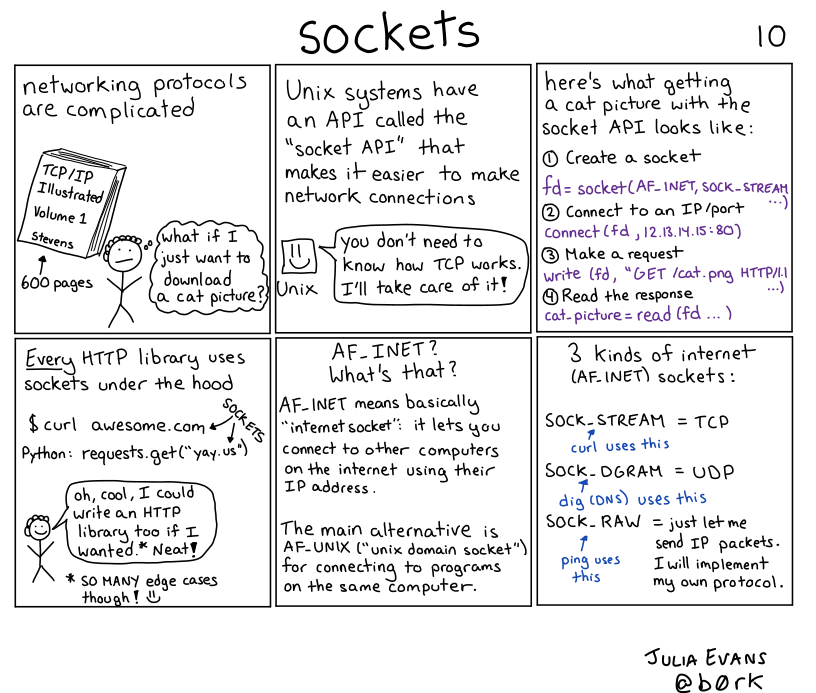 sockets
10
networking protocols
are complicated
TCP/IP
Illustrated
Volume 1
Stevens
600 pages
what if I
just want to
download
a cat picture?
Unix systems have
an API called the
"socket API" that
makes it easier to make
network connections
Unix
you don't need to
know how TCP works.
I'll take care of it!
here's what getting
a cat picture with the
socket API looks like:
① Create a socket
fd = socket(AF_INET, SOCK_STREAM
...)
② Connect to an IP/port
connect(fd, 12.13.14.15:80)
③ Make a request
write (fd, "GET /cat.png HTTP/1.1
...)
④ Read the response
cat_picture = read (fd ...)
Every HTTP library uses
sockets under the hood
$ curl awesome.com
SOCKETS
Python: requests.get("yay.us")
oh, cool, I could
write an HTTP
library too if I
wanted.* Neat!
* SO MANY edge cases
though! :)
AF_INET?
What's that?
AF_INET means basically
"internet socket": it lets you
connect to other computers
on the internet using their
IP address.
The main alternative is
AF_UNIX ("unix domain socket")
for connecting to programs
on the same computer.
3 kinds of internet
(AF_INET) sockets:
SOCK_STREAM = TCP
curl uses this
SOCK_DGRAM = UDP
dig (DNS) uses this
SOCK_RAW = just let me
send IP packets.
I will implement
my own protocol.
ping uses
this
JULIA EVANS
@b0rk